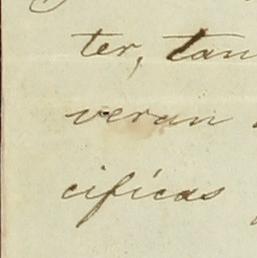 ter, tan
veran
cificas